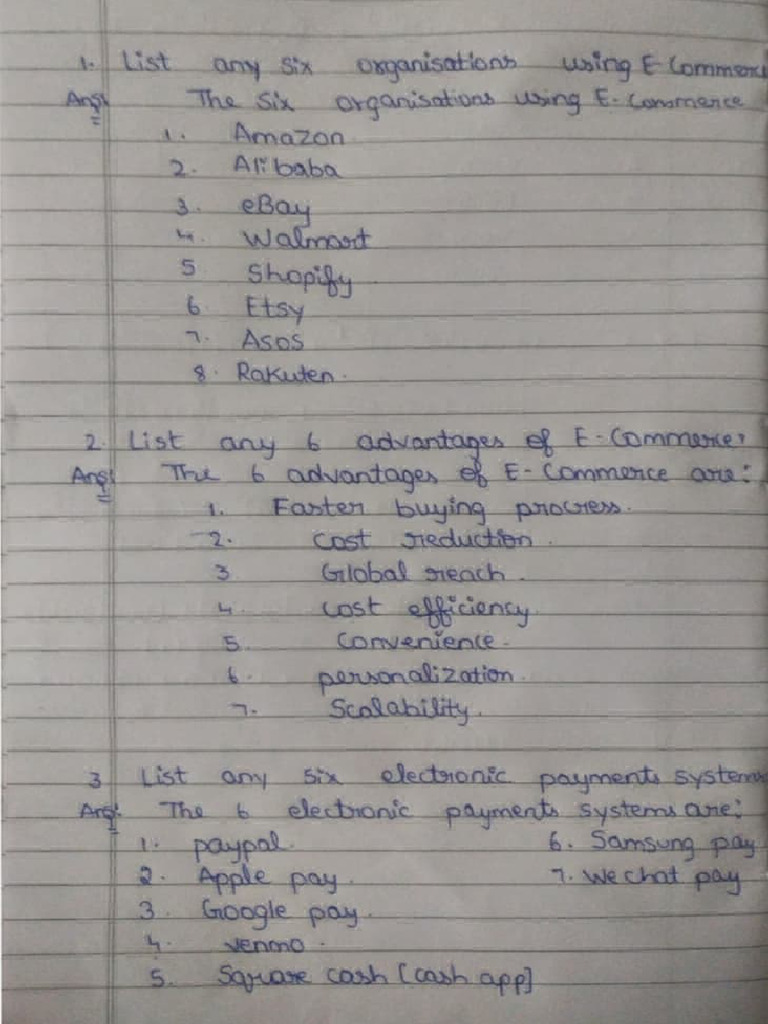 1. List any six organisations using E-Commerc
Ans: The six organisations using E-Commerce
1. Amazon
2. Alibaba
3. eBay
4. Walmart
5 Shopify
6 Etsy
7. Asos
8. Rakuten.
2. List any 6 advantages of E-Commerce:
Ans: The 6 advantages of E-Commerce are:
1. Faster buying process.
2. Cost reduction.
3 Global reach.
4. cost efficiency
5. Convenience.
6. personalization.
7. Scalability.
3 List any six electronic payments systems
Ans: The 6 electronic payments systems are:
1. paypal.
2. Apple pay.
3. Google pay.
4. venmo.
5. Square cash [cash app]
6. Samsung pay
7. We chat pay